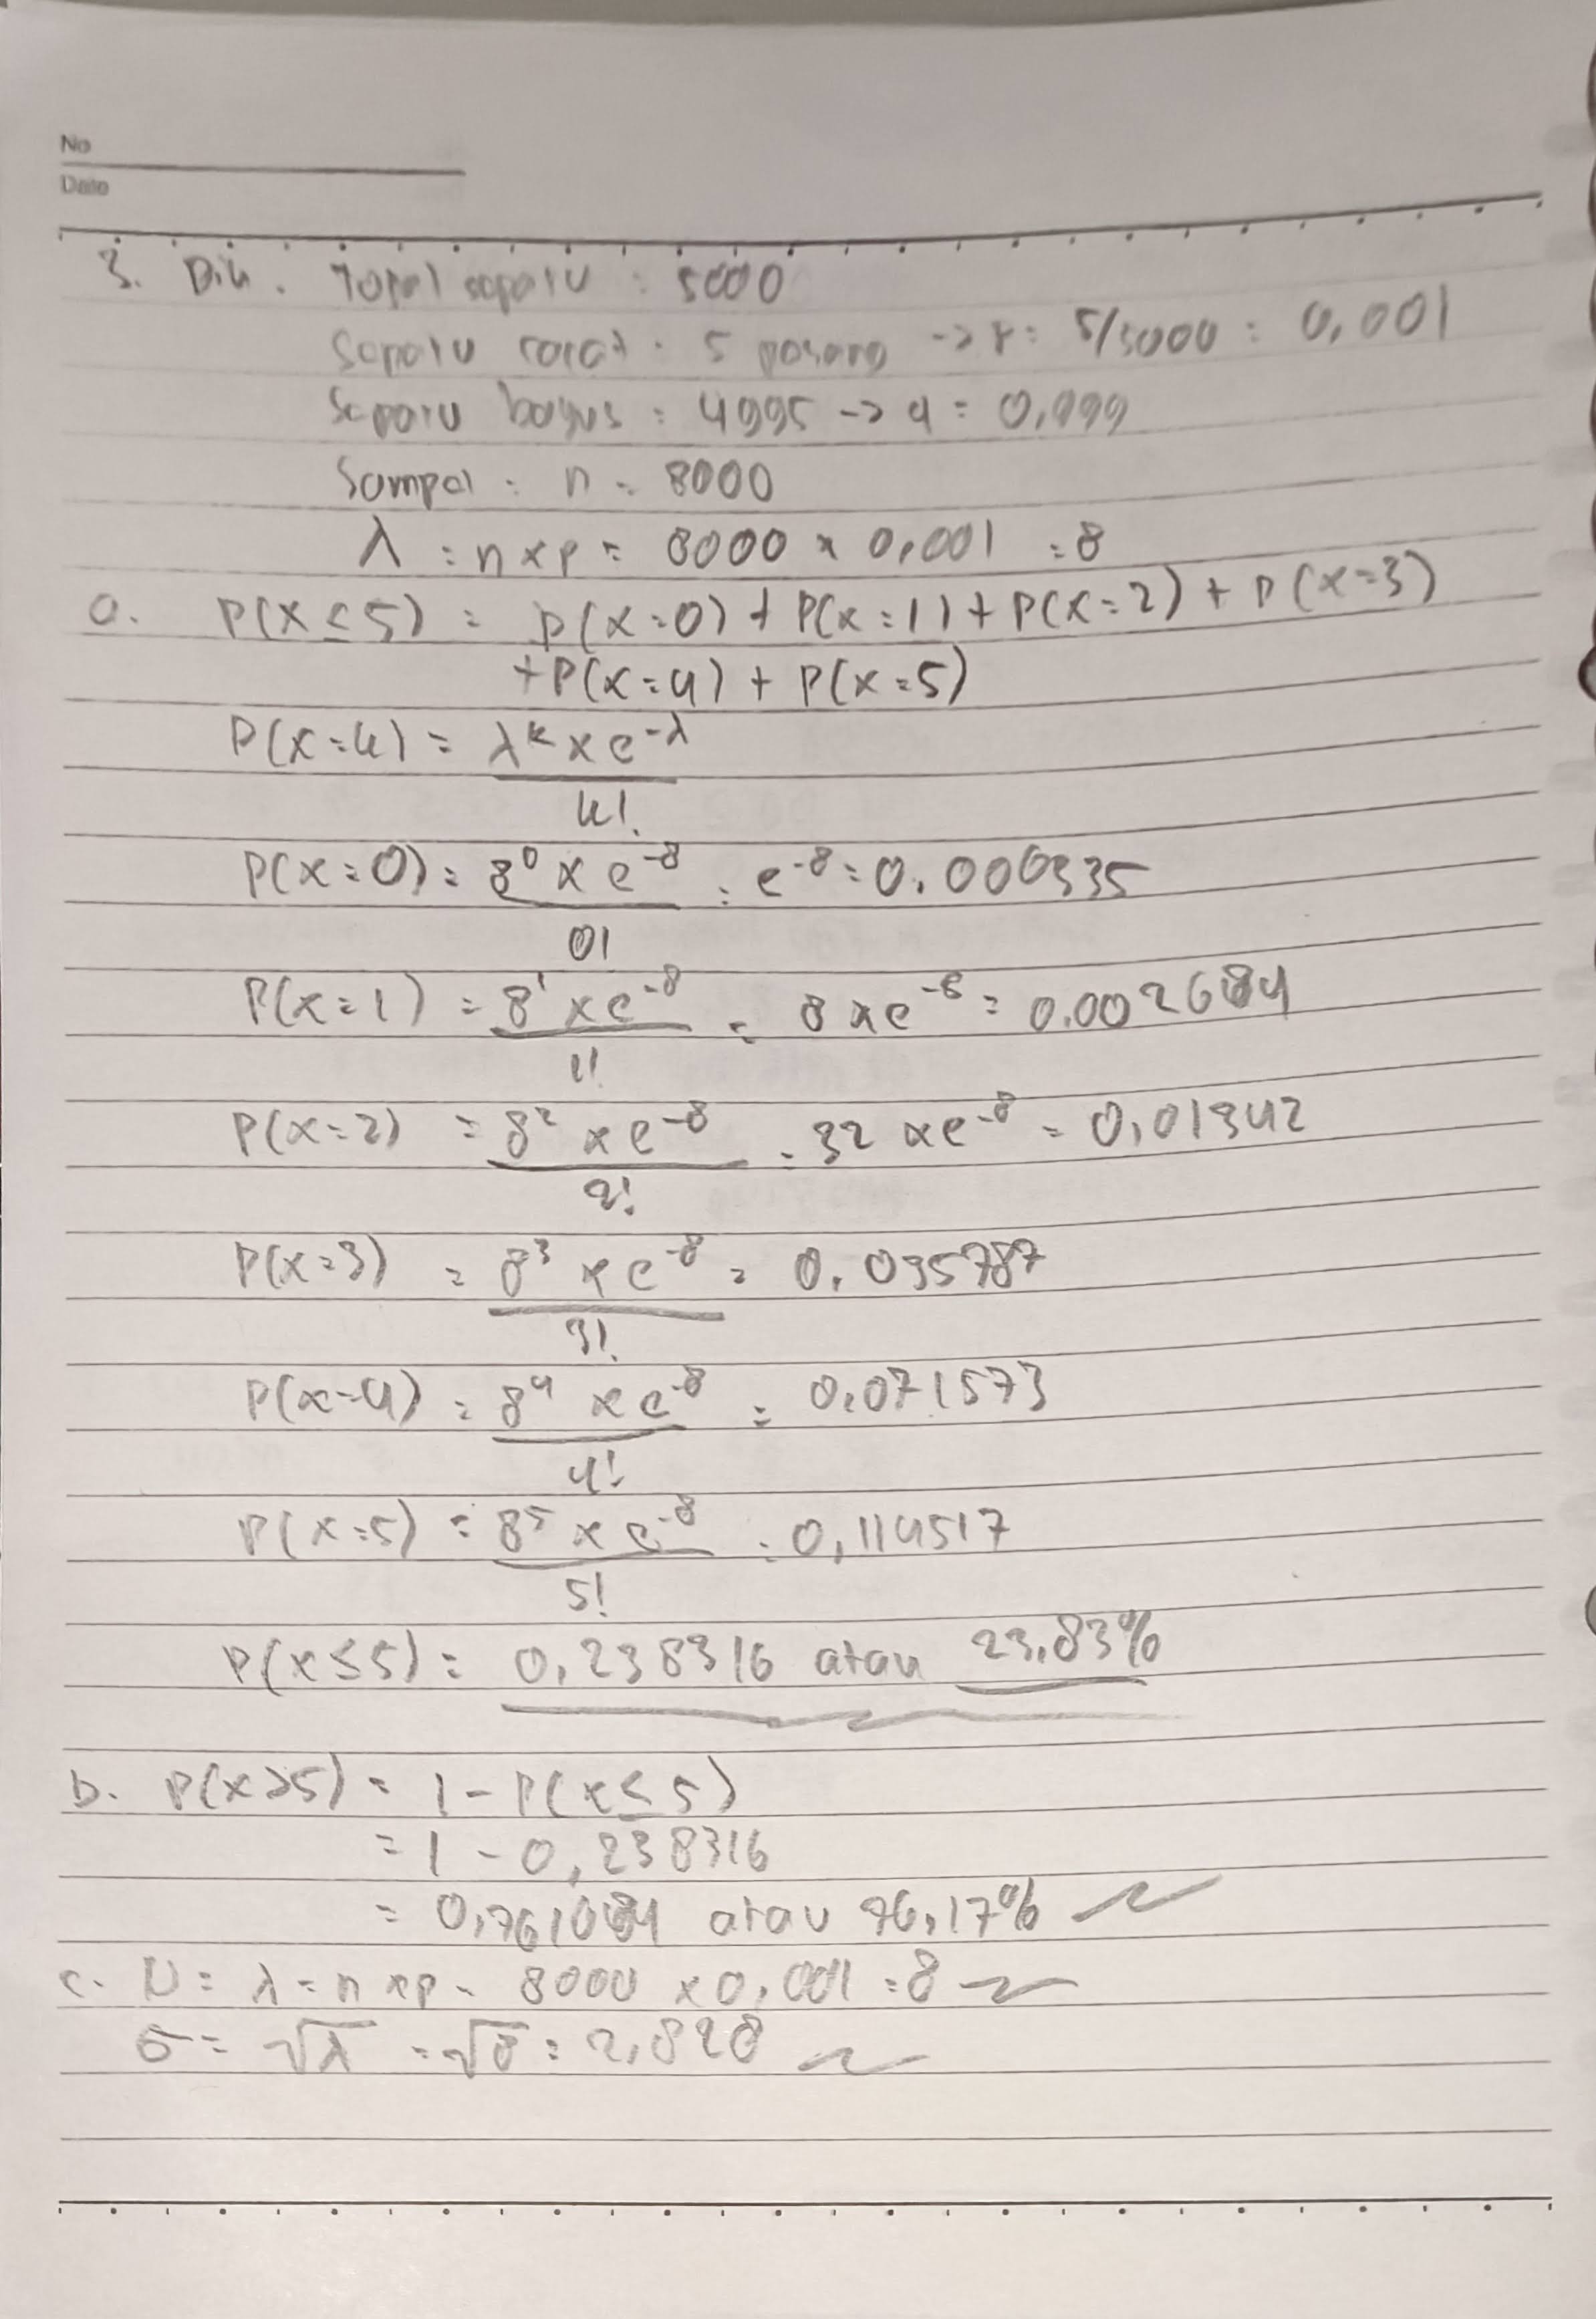 No
Date
3. Dik. Total sepatu : 5000
Sepatu cacat : 5 pasang -> P = 5/5000 = 0,001
Sepatu bagus : 4995 -> q = 0,999
Sampel : n = 8000
λ = n x p = 8000 x 0,001 = 8
a. P(X ≤ 5) = P(X=0) + P(X=1) + P(X=2) + P(X=3)
+ P(X=4) + P(X=5)
P(X=k) = λ^k x e^-λ
k!
P(X=0) = 8^0 x e^-8 = e^-8 = 0,000335
0!
P(X=1) = 8^1 x e^-8 = 8 x e^-8 = 0.002684
1!
P(X=2) = 8^2 x e^-8 = 32 x e^-8 = 0,01342
2!
P(X=3) = 8^3 x e^-8 = 0,035787
3!
P(X=4) = 8^4 x e^-8 = 0,071573
4!
P(X=5) = 8^5 x e^-8 = 0,114517
5!
P(X≤5) = 0,238316 atau 23,83%
b. P(X>5) = 1 - P(X≤5)
= 1 - 0,238316
= 0,761684 atau 76,17%
c. μ = λ = n x p = 8000 x 0,001 = 8
σ = √λ = √8 = 2,828